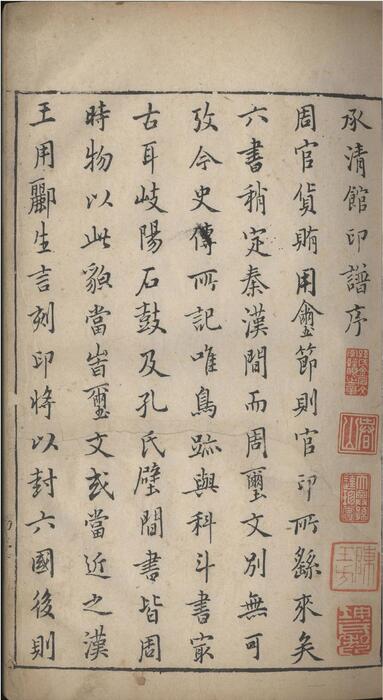 承清館印譜序
周官貨賄用璽節則官印所繇來矣
六書稍定秦漢間而周璽文別無可
攷今史傳所記唯鳥跡與科斗書寂
古耳岐陽石鼓及孔氏壁間書皆周
時物以此貌當峕璽文或當近之漢
王用酈生言刻印將以封六國後則